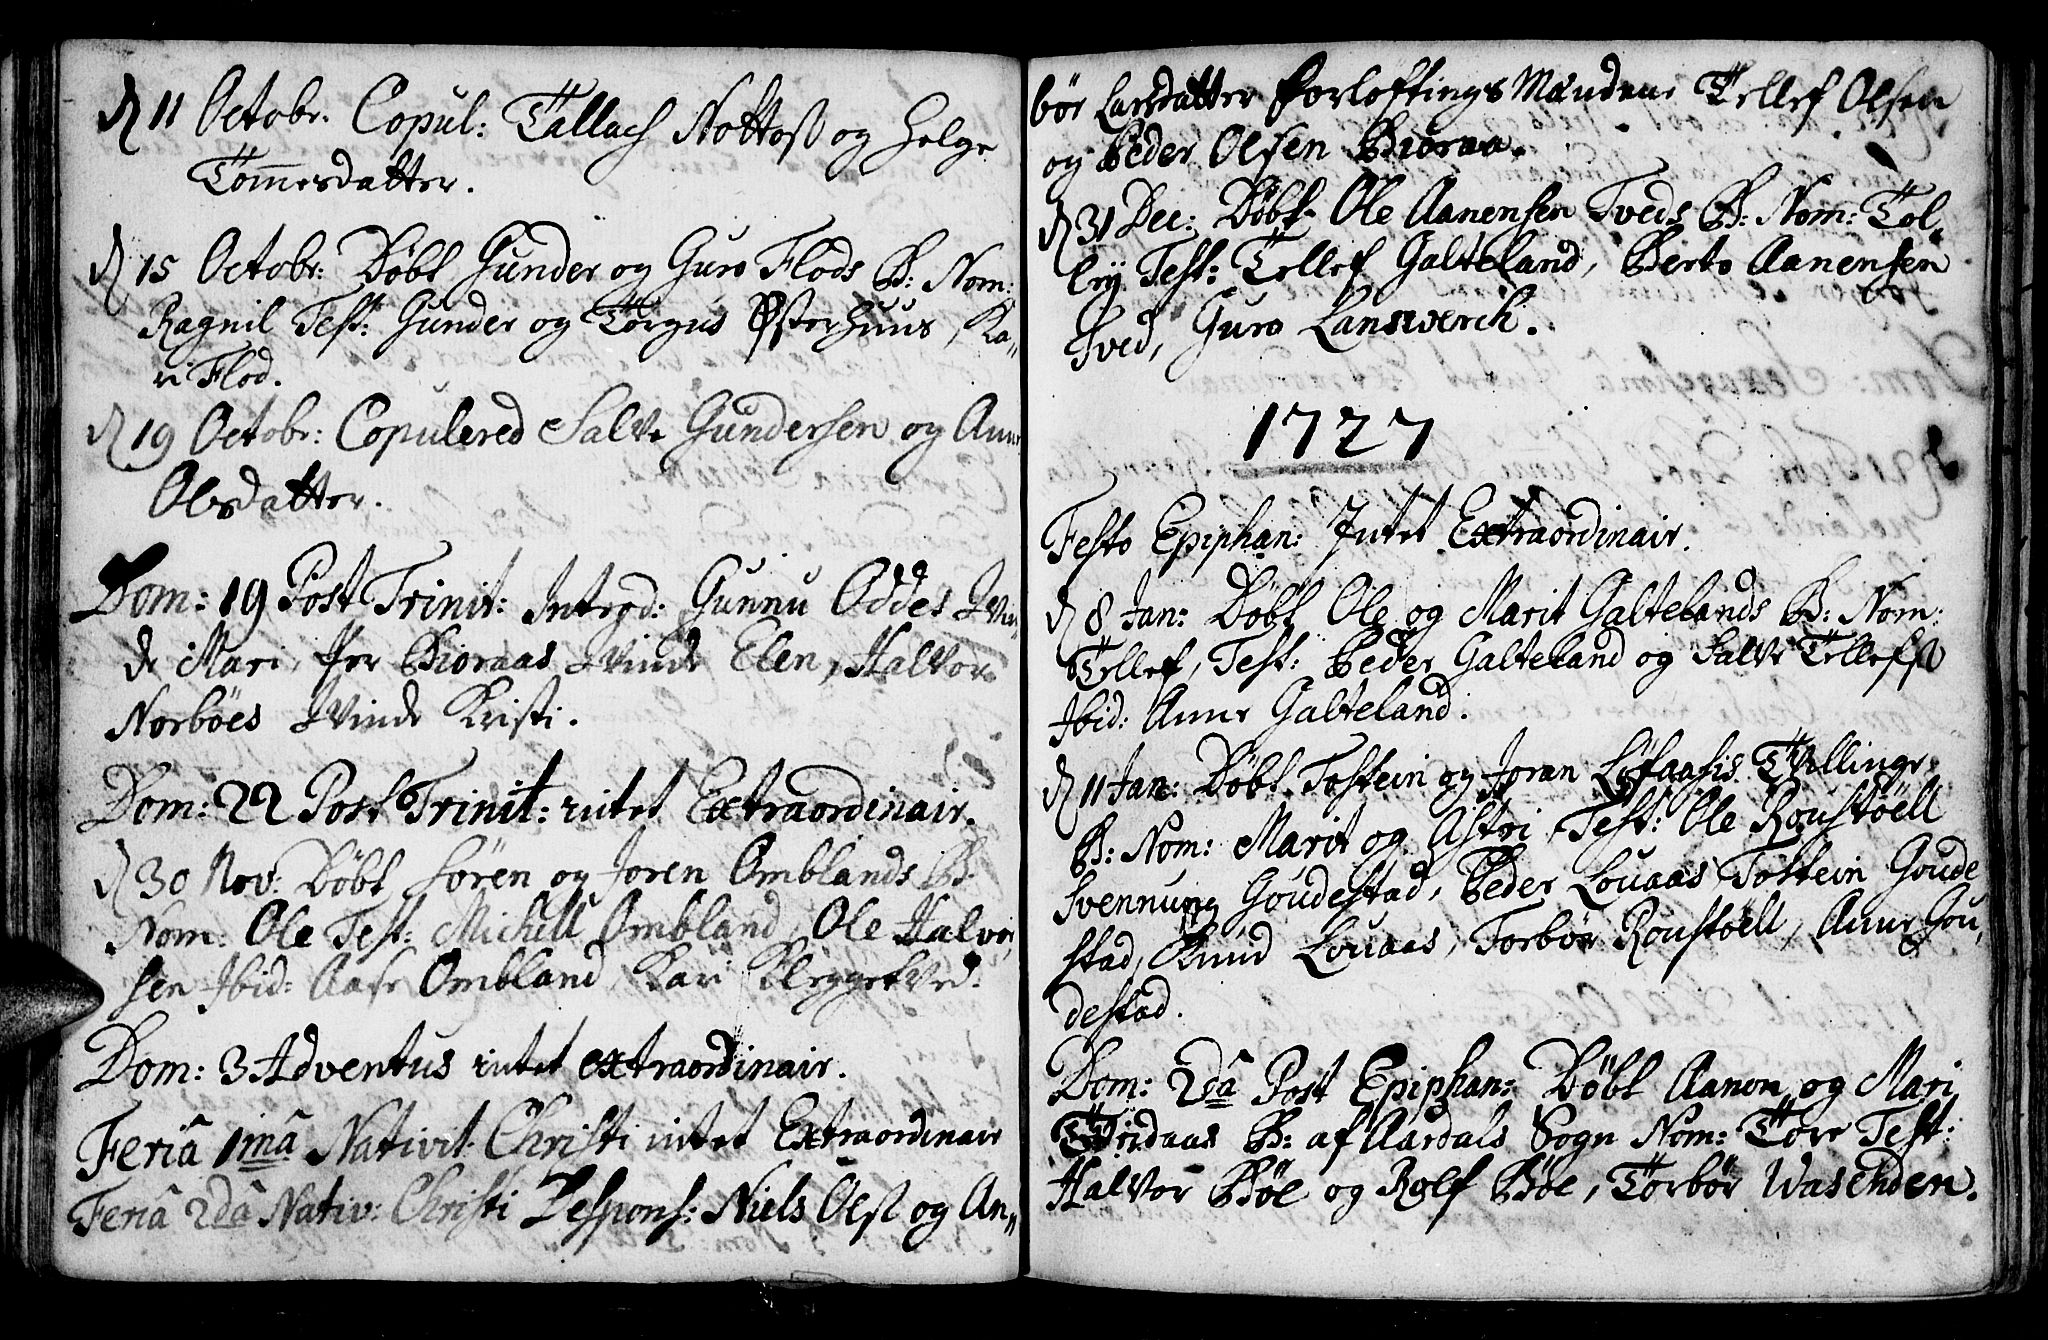 D 11 Octobr. Copul: Tallach Nottoss og Helge
Tommesdatter.
D 15 Octobr: Döbt Gunder og Guro Flods B: Nom:
Ragnil Test: Gunder og Torgus Østerhuus, Ka„
ri Flod.
D 19 Octobr: Copulered Salve Gundersen og Anne
Olsdatter.
Dom: 19 Post Trinit: Introd: Gunnu Oddes Qvin„
de Mari, Jer Bioraas Qvinde Elen, Halvor
Norböes Qvinde Kristi.
Dom: 22 Post Trinit: intet Extraordinair.
D 30 Nov: Döbt Sören og Joren Omblands B:
Nom: Ole Test: Michell Ombland, Ole Halvor„
sen Ibid: Aase Ombland, Kari Kleggetved:
Dom: 3 Adventus intet extraordinair.
Feriâ 1mâ Nativit: Christi intet Extraordinair
Feriâ 2dâ Nativ: Christi Desspons: Niels Olss og An„
bör Larsdatter Forloftings Mændene Tellef Olsen
og Peder Olsen Bioraa.
D 31 Dec: Döbt Ole Aanensen Tveds B: Nom: Tol„
ley Test: Tellef Galteland, Berte Aanensen
Tved, Guro Lanswerch.
1727
Festo Epiphan: Intet Extraordinair.
D 8 Jan: Döbt Ole og Marit Galtelands B: Nom:
Tellef, Test: Peder Galteland og Salve Tellefss
Ibid: Anne Galteland.
D 11 Jan: Döbt Tostein og Joran Löfaasis Tvillinge
B: Nom: Marit og Astri, Test: Ole Roustöell
Svennung Goudestad, Peder Louaas, Tostein Goude„
stad, Knud Louaas, Torbör Roustöell, Anne Gou„
destad.
Dom: 2dâ Post Epiphan: Döbt Aanon og Mari
Tvidaas B: af Aardals Sogn Nom: Tore Test:
Halvor Böe og Rolf Böe, Torbör Wasenden.